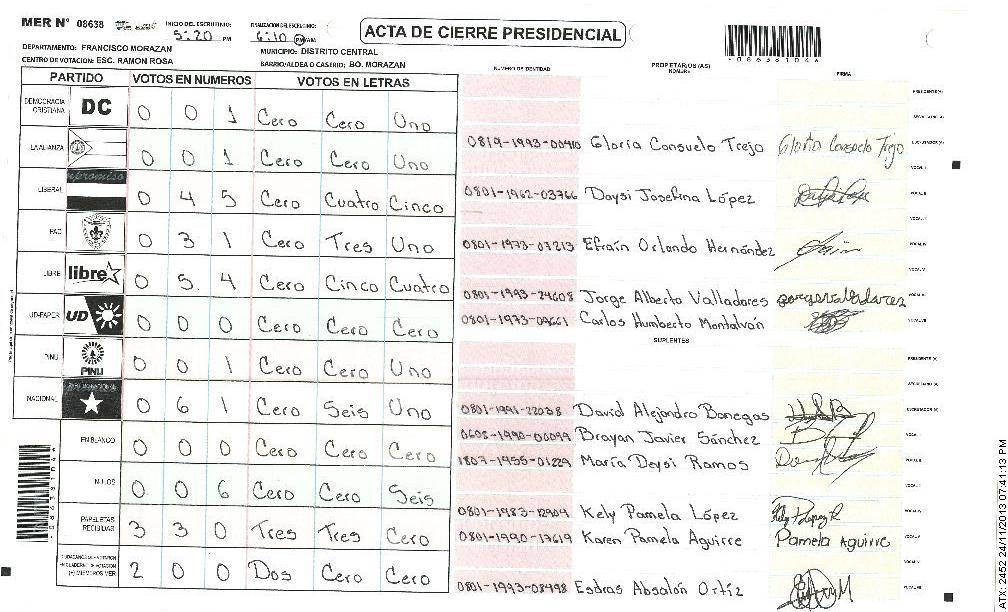 MER N° 08638 INICIO DEL ESCRUTINIO: 5:20 PM FINALIZACION DEL ESCRUTINIO: 6:10 PM/AM
ACTA DE CIERRE PRESIDENCIAL
DEPARTAMENTO: FRANCISCO MORAZAN MUNICIPIO: DISTRITO CENTRAL
CENTRO DE VOTACION: ESC. RAMON ROSA BARRIO/ALDEA O CASERIO: BO. MORAZAN
-086381046
PARTIDO VOTOS EN NUMEROS VOTOS EN LETRAS
DEMOCRACIA CRISTIANA DC 0 0 1 Cero Cero Uno
LA ALIANZA 0 0 1 Cero Cero Uno
LIBERAL 0 4 5 Cero Cuatro Cinco
PAC 0 3 1 Cero Tres Uno
LIBRE libre 0 5 4 Cero Cinco Cuatro
UD-FAPER UD 0 0 0 Cero Cero Cero
PINU PINU 0 0 1 Cero Cero Uno
NACIONAL 0 6 1 Cero Seis Uno
EN BLANCO 0 0 0 Cero Cero Cero
NULOS 0 0 6 Cero Cero Seis
PAPELETAS RECIBIDAS 3 3 0 Tres Tres Cero
(+) MIEMBROS MER 2 0 0 Dos Cero Cero
NUMERO DE IDENTIDAD PROPIETARIOS (AS) NOMBRE FIRMA
PRESIDENTE (A)
SECRETARIO (A)
Gloria Consuelo Trejo Gloria Consuelo Trejo ESCRUTADOR (A)
VOCAL I
0801-1962-03766 Daysi Josefina López VOCAL II
0801-1973-07213 Efraín Orlando Hernández VOCAL IV
0801-1993-24608 Jorge Alberto Valladares
Carlos Humberto Montalván
SUPLENTES
PRESIDENTE (A)
SECRETARIO (A)
0801-1991-22038 David Alejandro Banegas ESCRUTADOR (A)
0608-1990-00099 Brayan Javier Sánchez VOCAL I
1807-1955-01229 María Deysi Ramos VOCAL II
Kely Pamela López
0801-1990-17619 Karen Pamela Aguirre Pamela Aguirre
0801-1993-08498 Esdras Absalón Ortiz
ATX: 2452 24/11/2013 07:41:13 PM